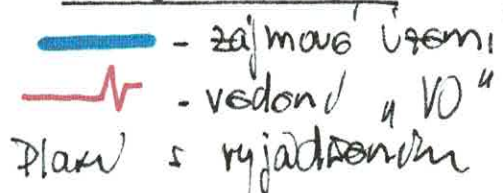 - zájmové území
- vedení "VO"
Platí s vyjádřením